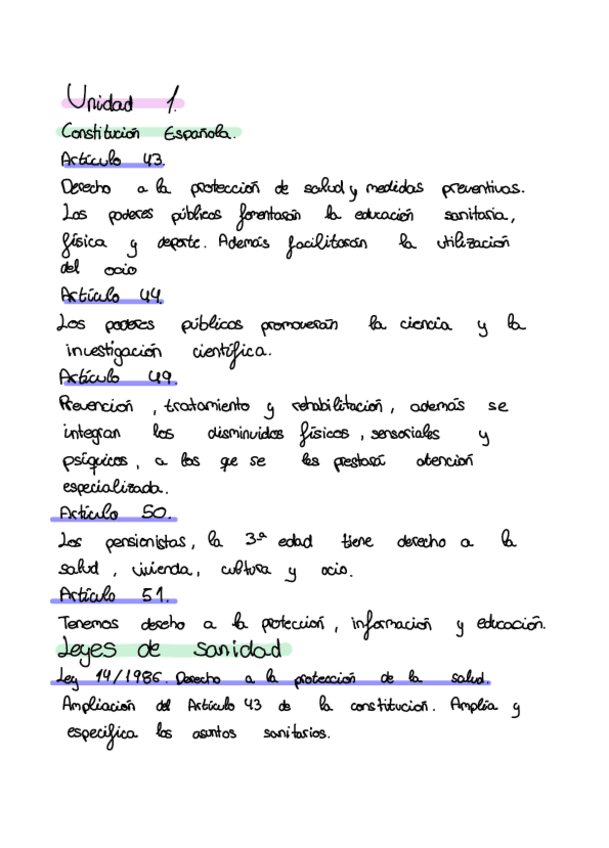 Unidad 1.
Constitución Española.
Artículo 43.
Derecho a la protección de salud y medidas preventivas.
Los poderes públicos fomentarán la educación sanitaria,
física y deporte. Además facilitarán la utilización
del ocio
Artículo 44.
Los poderes públicos promoverán la ciencia y la
investigación científica.
Artículo 49.
Prevención, tratamiento y rehabilitación, además se
integran los disminuidos físicos, sensoriales y
psíquicos, a los que se les prestará atención
especializada.
Artículo 50.
Los pensionistas, la 3ª edad tiene derecho a la
salud, vivienda, cultura y ocio.
Artículo 51.
Tenemos derecho a la protección, información y educación.
Leyes de sanidad
Ley 14/1986. Derecho a la protección de la salud.
Ampliación del Artículo 43 de la constitución. Amplía y
especifica los asuntos sanitarios.